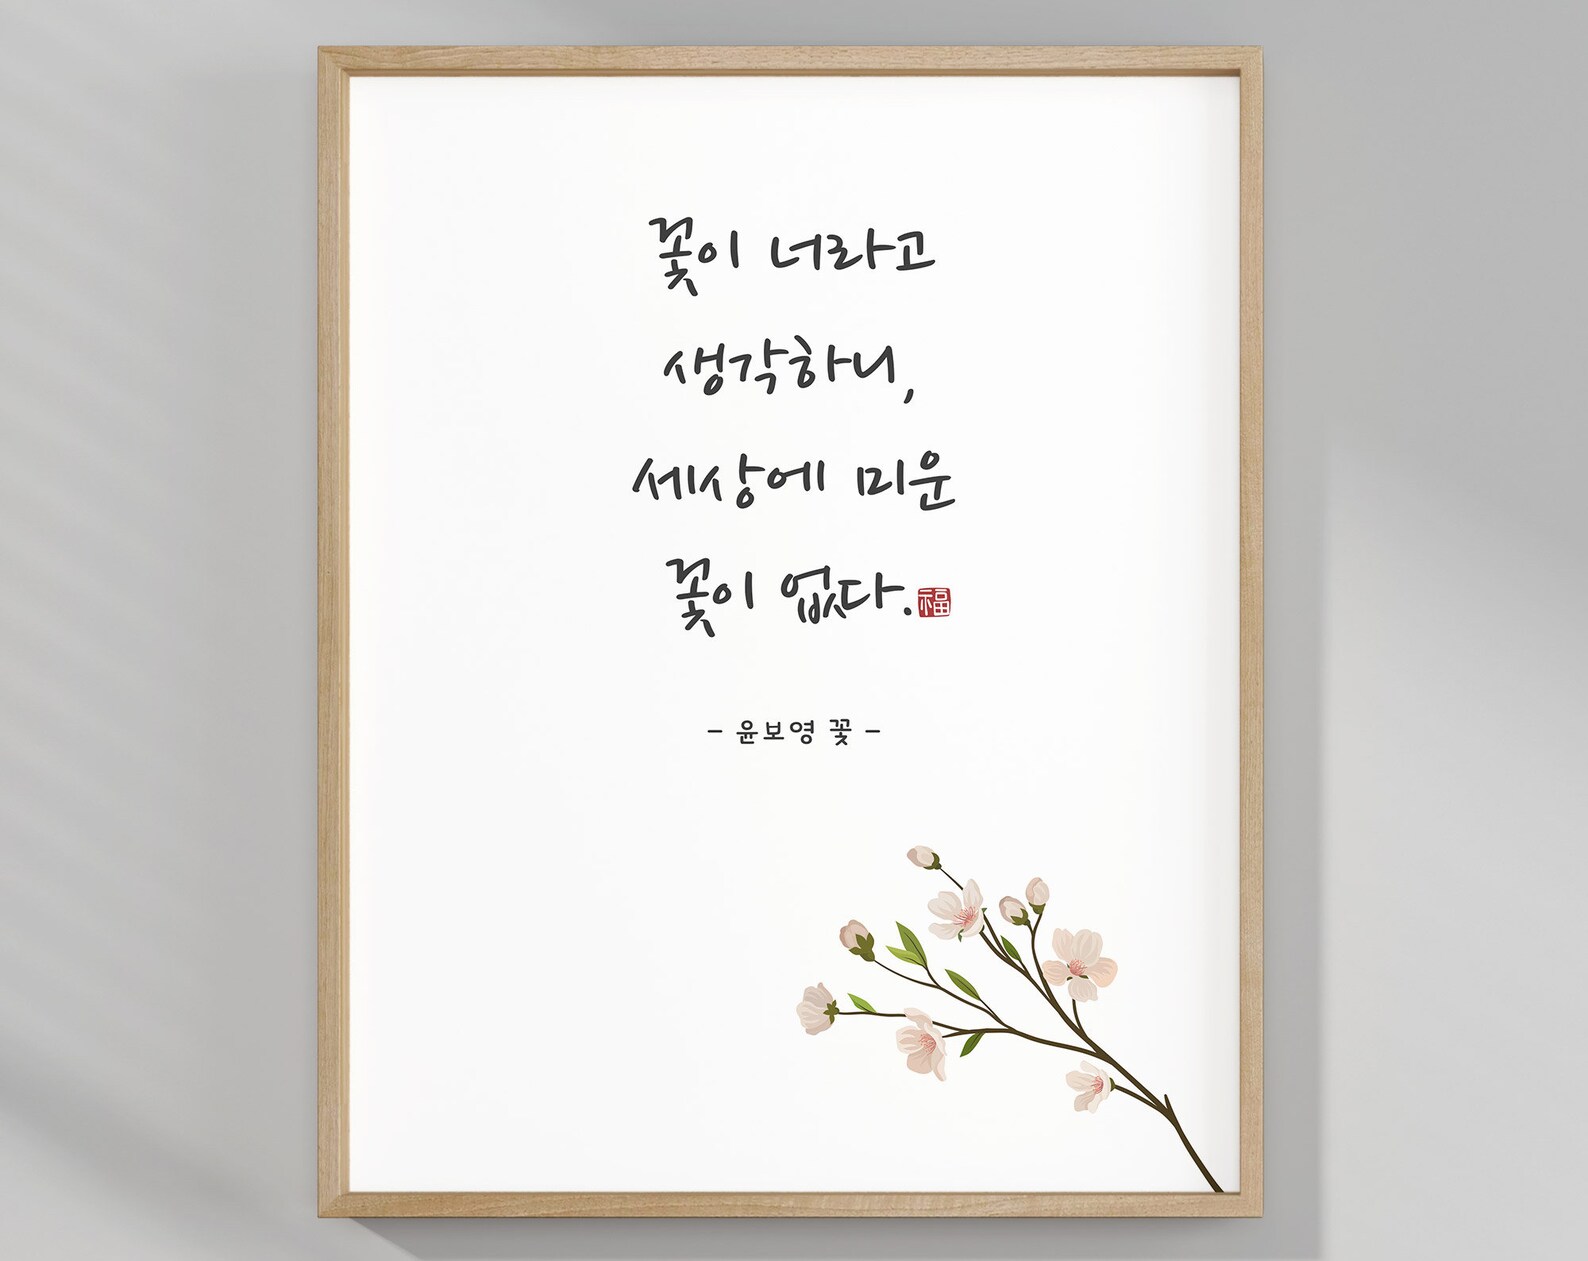 꽃이 너라고
생각하니,
세상에 미운
꽃이 없다.福
- 윤보영 꽃 -